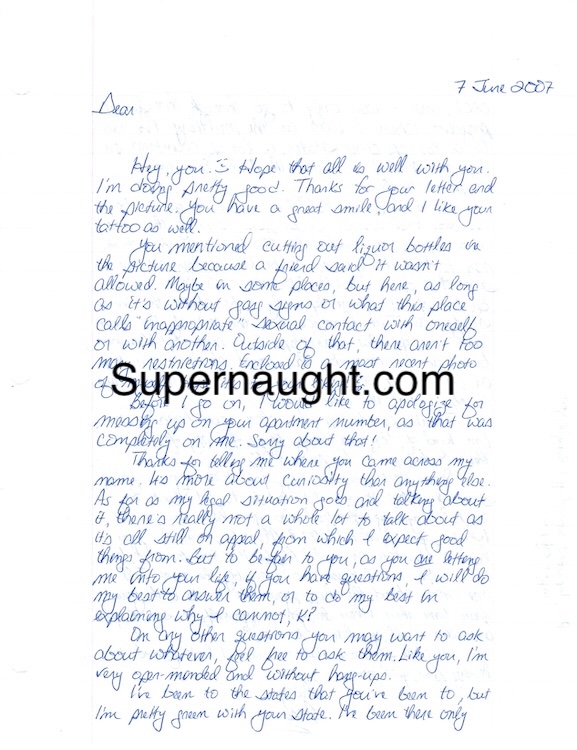 7 June 2007
Dear
Hey, you. :) Hope that all is well with you.
I'm doing pretty good. Thanks for your letter and
the picture. You have a great smile, and I like your
tattoo as well.
You mentioned cutting out liquor bottles in
the picture because a friend said it wasn't
allowed. Maybe in some places, but here, as long
as it's without gang signs or what this place
calls "inappropriate" sexual contact with oneself
or with another. Outside of that, there aren't too
many restrictions. Enclosed is a most recent photo
of
Supernaught.com
Before I go on, I would like to apologize for
messing up on your apartment number, as that was
completely on me. Sorry about that!
Thanks for telling me where you came across my
name. It's more about curiosity than anything else.
As far as my legal situation goes and talking about
it, there's really not a whole lot to talk about as
it's all still on appeal, from which I expect good
things from. But to be fair to you, as you are letting
me into your life, if you have questions, I will do
my best to answer them, or to do my best in
explaining why I cannot, K?
On any other questions you may want to ask
about whatever, feel free to ask them. Like you, I'm
very open-minded and without hang-ups.
I've been to the states that you've been to, but
I'm pretty green with your state. I've been there only